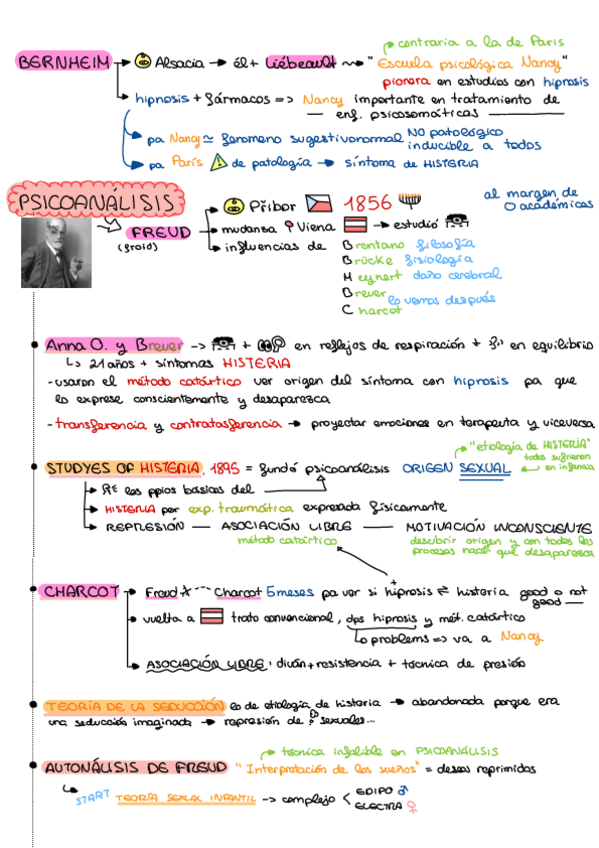 contraria a la de París
BERNHEIM → Alsacia → él + Liébeault → "Escuela psicológica Nancy"
pionera en estudios con hipnosis
hipnosis + fármacos => Nancy importante en tratamiento de
enf. psicosomáticas
pa Nancy ≃ fenómeno sugestivo normal NO patológico
inducible a todos
pa París de patología → síntoma de HISTERIA
PSICOANÁLISIS
FREUD
(froid)
Příbor 1856
al margen de
académicos
mudansa Viena → estudió
influencias de
Brentano filosofía
Brücke fisiología
Meynert daño cerebral
Breuer
lo vemos después
Charcot
Anna O. y Breuer -> + en reflejos de respiración + en equilibrio
↳ 21 años + síntomas HISTERIA
- usaron el método catártico ver origen del síntoma con hipnosis pa que
lo exprese conscientemente y desaparezca
- transferencia y contratasferencia → proyectar emociones en terapeuta y viceversa
"etiología de HISTERIA"
todas sufrieron
en infancia
STUDYES OF HISTERIA, 1895 = fundó psicoanálisis ORIGEN SEXUAL
los ppios básicos del
HISTERIA por exp. traumática expresada físicamente
REPRESIÓN — ASOCIACIÓN LIBRE — MOTIVACIÓN INCONSCIENTE
método catártico
descubrir origen y con todos los
procesos hacer que desaparezca
CHARCOT → Freud Charcot 5 meses pa ver si hipnosis ⇌ histeria good o not
good
vuelta a trato convencional, dps hipnosis y mét. catártico
problems => va a Nancy
ASOCIACIÓN LIBRE: diván + resistencia + técnica de presión
TEORÍA DE LA SEDUCCIÓN lo de etiología de histeria → abandonada porque era
una seducción imaginada → represión de sexuales...
técnica infalible en PSICOANÁLISIS
AUTONÁLISIS DE FREUD "Interpretación de los sueños" = deseos reprimidos
START TEORÍA SEXUAL INFANTIL -> complejo < EDIPO ♂
ELECTRA ♀